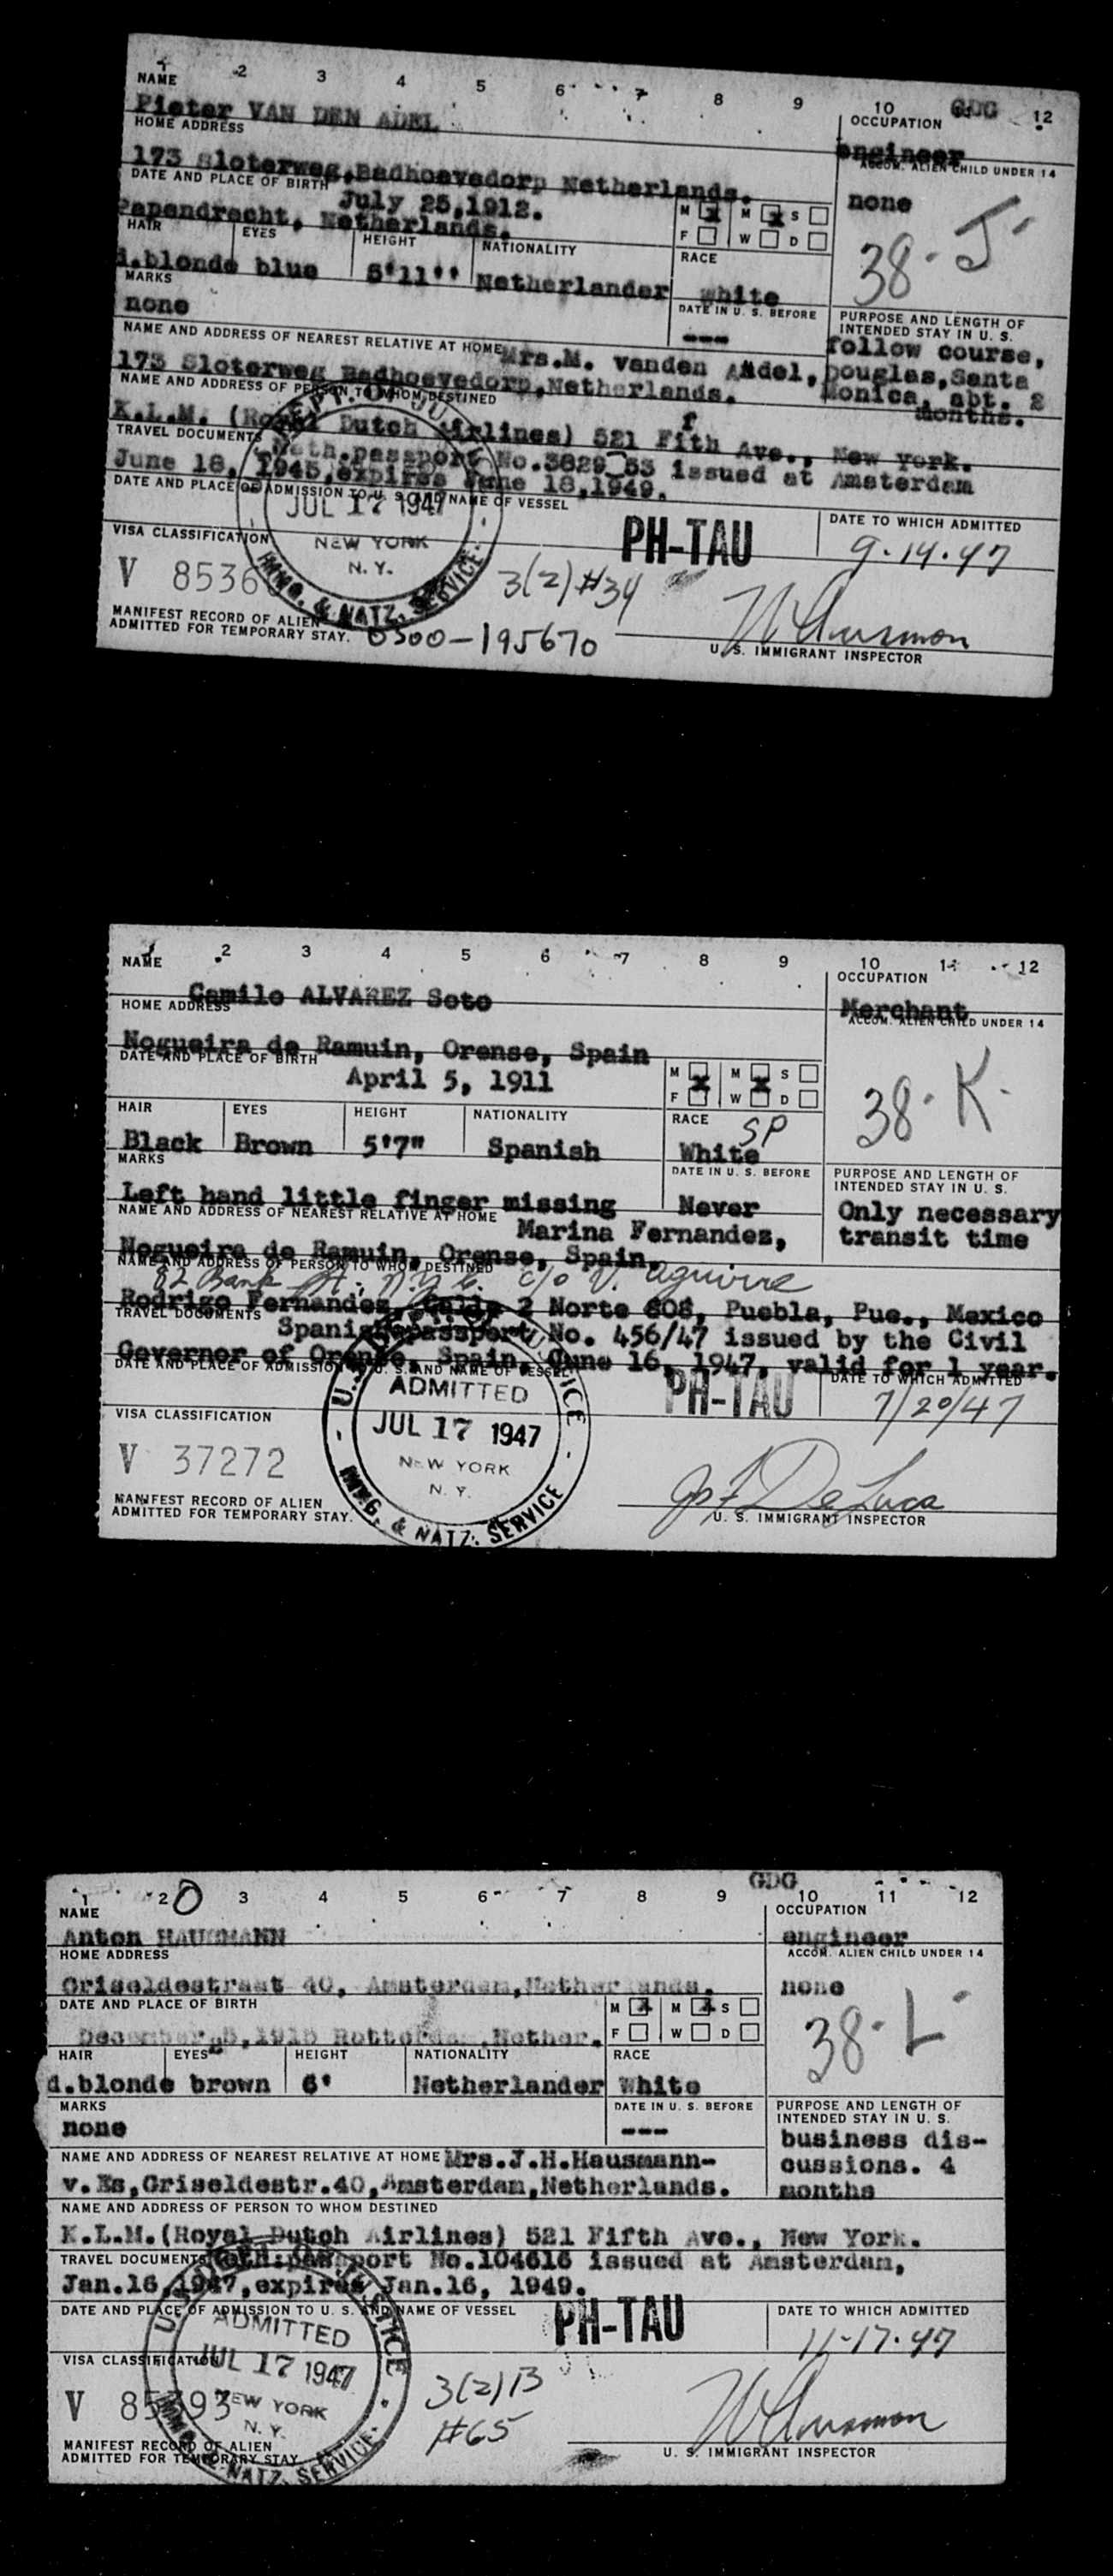 1 2 3 4 5 6 7 8 9 10 GDG 12
NAME
Pieter VAN DEN ADEL
OCCUPATION
engineer
HOME ADDRESS
ACCOM. ALIEN CHILD UNDER 14
173 Sloterweg,Badhoevedorp Netherlands.
none
DATE AND PLACE OF BIRTH
July 25,1912.
Papendrecht, Netherlands.
M X M X S
F W D
38-J
HAIR EYES HEIGHT NATIONALITY RACE
d.blonde blue 5'11'' Netherlander white
MARKS
none
DATE IN U. S. BEFORE
---
PURPOSE AND LENGTH OF
INTENDED STAY IN U. S.
follow course,
Douglas,Santa
Monica, abt. 2
months.
NAME AND ADDRESS OF NEAREST RELATIVE AT HOME Mrs.M. vanden Andel,
173 Sloterweg Badhoevedorp,Netherlands.
NAME AND ADDRESS OF PERSON TO WHOM DESTINED
f
K.L.M. (Royal Dutch Airlines) 521 Fith Ave., New york.
TRAVEL DOCUMENTS Neth.passport No.3829 53 issued at Amsterdam
June 18, 1945,expires June 18,1949.
DATE AND PLACE OF ADMISSION TO U. S. AND NAME OF VESSEL
DEPT. OF JU
JUL 17 1947
NEW YORK
N. Y.
IMMG. & NATZ. SERVICE
PH-TAU
DATE TO WHICH ADMITTED
9-14-47
VISA CLASSIFICATION
V 8536
3(2)#34
MANIFEST RECORD OF ALIEN
ADMITTED FOR TEMPORARY STAY.
0300-195670
U. S. IMMIGRANT INSPECTOR
1 2 3 4 5 6 7 8 9 10 11 12
NAME
Camilo ALVAREZ Soto
OCCUPATION
Merchant
HOME ADDRESS
ACCOM. ALIEN CHILD UNDER 14
Nogueira de Ramuin, Orense, Spain
DATE AND PLACE OF BIRTH
April 5, 1911
M X M X S
F W D
38-K-
HAIR EYES HEIGHT NATIONALITY RACE SP
Black Brown 5'7" Spanish White
MARKS
Left hand little finger missing
DATE IN U. S. BEFORE
Never
PURPOSE AND LENGTH OF
INTENDED STAY IN U. S.
Only necessary
transit time
NAME AND ADDRESS OF NEAREST RELATIVE AT HOME
Marina Fernandez,
Nogueira de Ramuin, Orense, Spain.
NAME AND ADDRESS OF PERSON TO WHOM DESTINED
82 Bank St., N.Y.C. c/o V. Aguirre
Rodrigo Fernandez, 2 Norte 808, Puebla, Pue., Mexico
TRAVEL DOCUMENTS
Spanish passport No. 456/47 issued by the Civil
Governor of Orense, Spain, June 16, 1947, valid for 1 year.
DATE AND PLACE OF ADMISSION TO U. S. AND NAME OF VESSEL
ADMITTED
JUL 17 1947
NEW YORK
N. Y.
IMMG. & NATZ. SERVICE
PH-TAU
DATE TO WHICH ADMITTED
7/20/47
VISA CLASSIFICATION
V 37272
MANIFEST RECORD OF ALIEN
ADMITTED FOR TEMPORARY STAY.
Jos F De Luca
U. S. IMMIGRANT INSPECTOR
GDG
1 2 0 3 4 5 6 7 8 9 10 11 12
NAME
Anton HAUSMANN
OCCUPATION
engineer
HOME ADDRESS
ACCOM. ALIEN CHILD UNDER 14
Griseldestraat 40, Amsterdam,Netherlands.
none
DATE AND PLACE OF BIRTH
Rotterdam,Nether.
M X M X S
F W D
38-L-
HAIR EYES HEIGHT NATIONALITY RACE
d.blonde brown 6' Netherlander White
MARKS
none
DATE IN U. S. BEFORE
---
PURPOSE AND LENGTH OF
INTENDED STAY IN U. S.
business dis-
cussions. 4
months
NAME AND ADDRESS OF NEAREST RELATIVE AT HOME Mrs.J.H.Hausmann-
v.Es,Griseldestr.40,Amsterdam,Netherlands.
NAME AND ADDRESS OF PERSON TO WHOM DESTINED
K.L.M.(Royal Dutch Airlines) 521 Fifth Ave., New York.
TRAVEL DOCUMENTS Neth.passport No.104616 issued at Amsterdam,
Jan.16,1947,expires Jan.16, 1949.
DATE AND PLACE OF ADMISSION TO U. S. AND NAME OF VESSEL
ADMITTED
JUL 17 1947
NEW YORK
N. Y.
NATZ. SERVICE
PH-TAU
DATE TO WHICH ADMITTED
11-17-47
VISA CLASSIFICATION
V 85393
3(2)B
#65
MANIFEST RECORD OF ALIEN
ADMITTED FOR TEMPORARY STAY
U. S. IMMIGRANT INSPECTOR